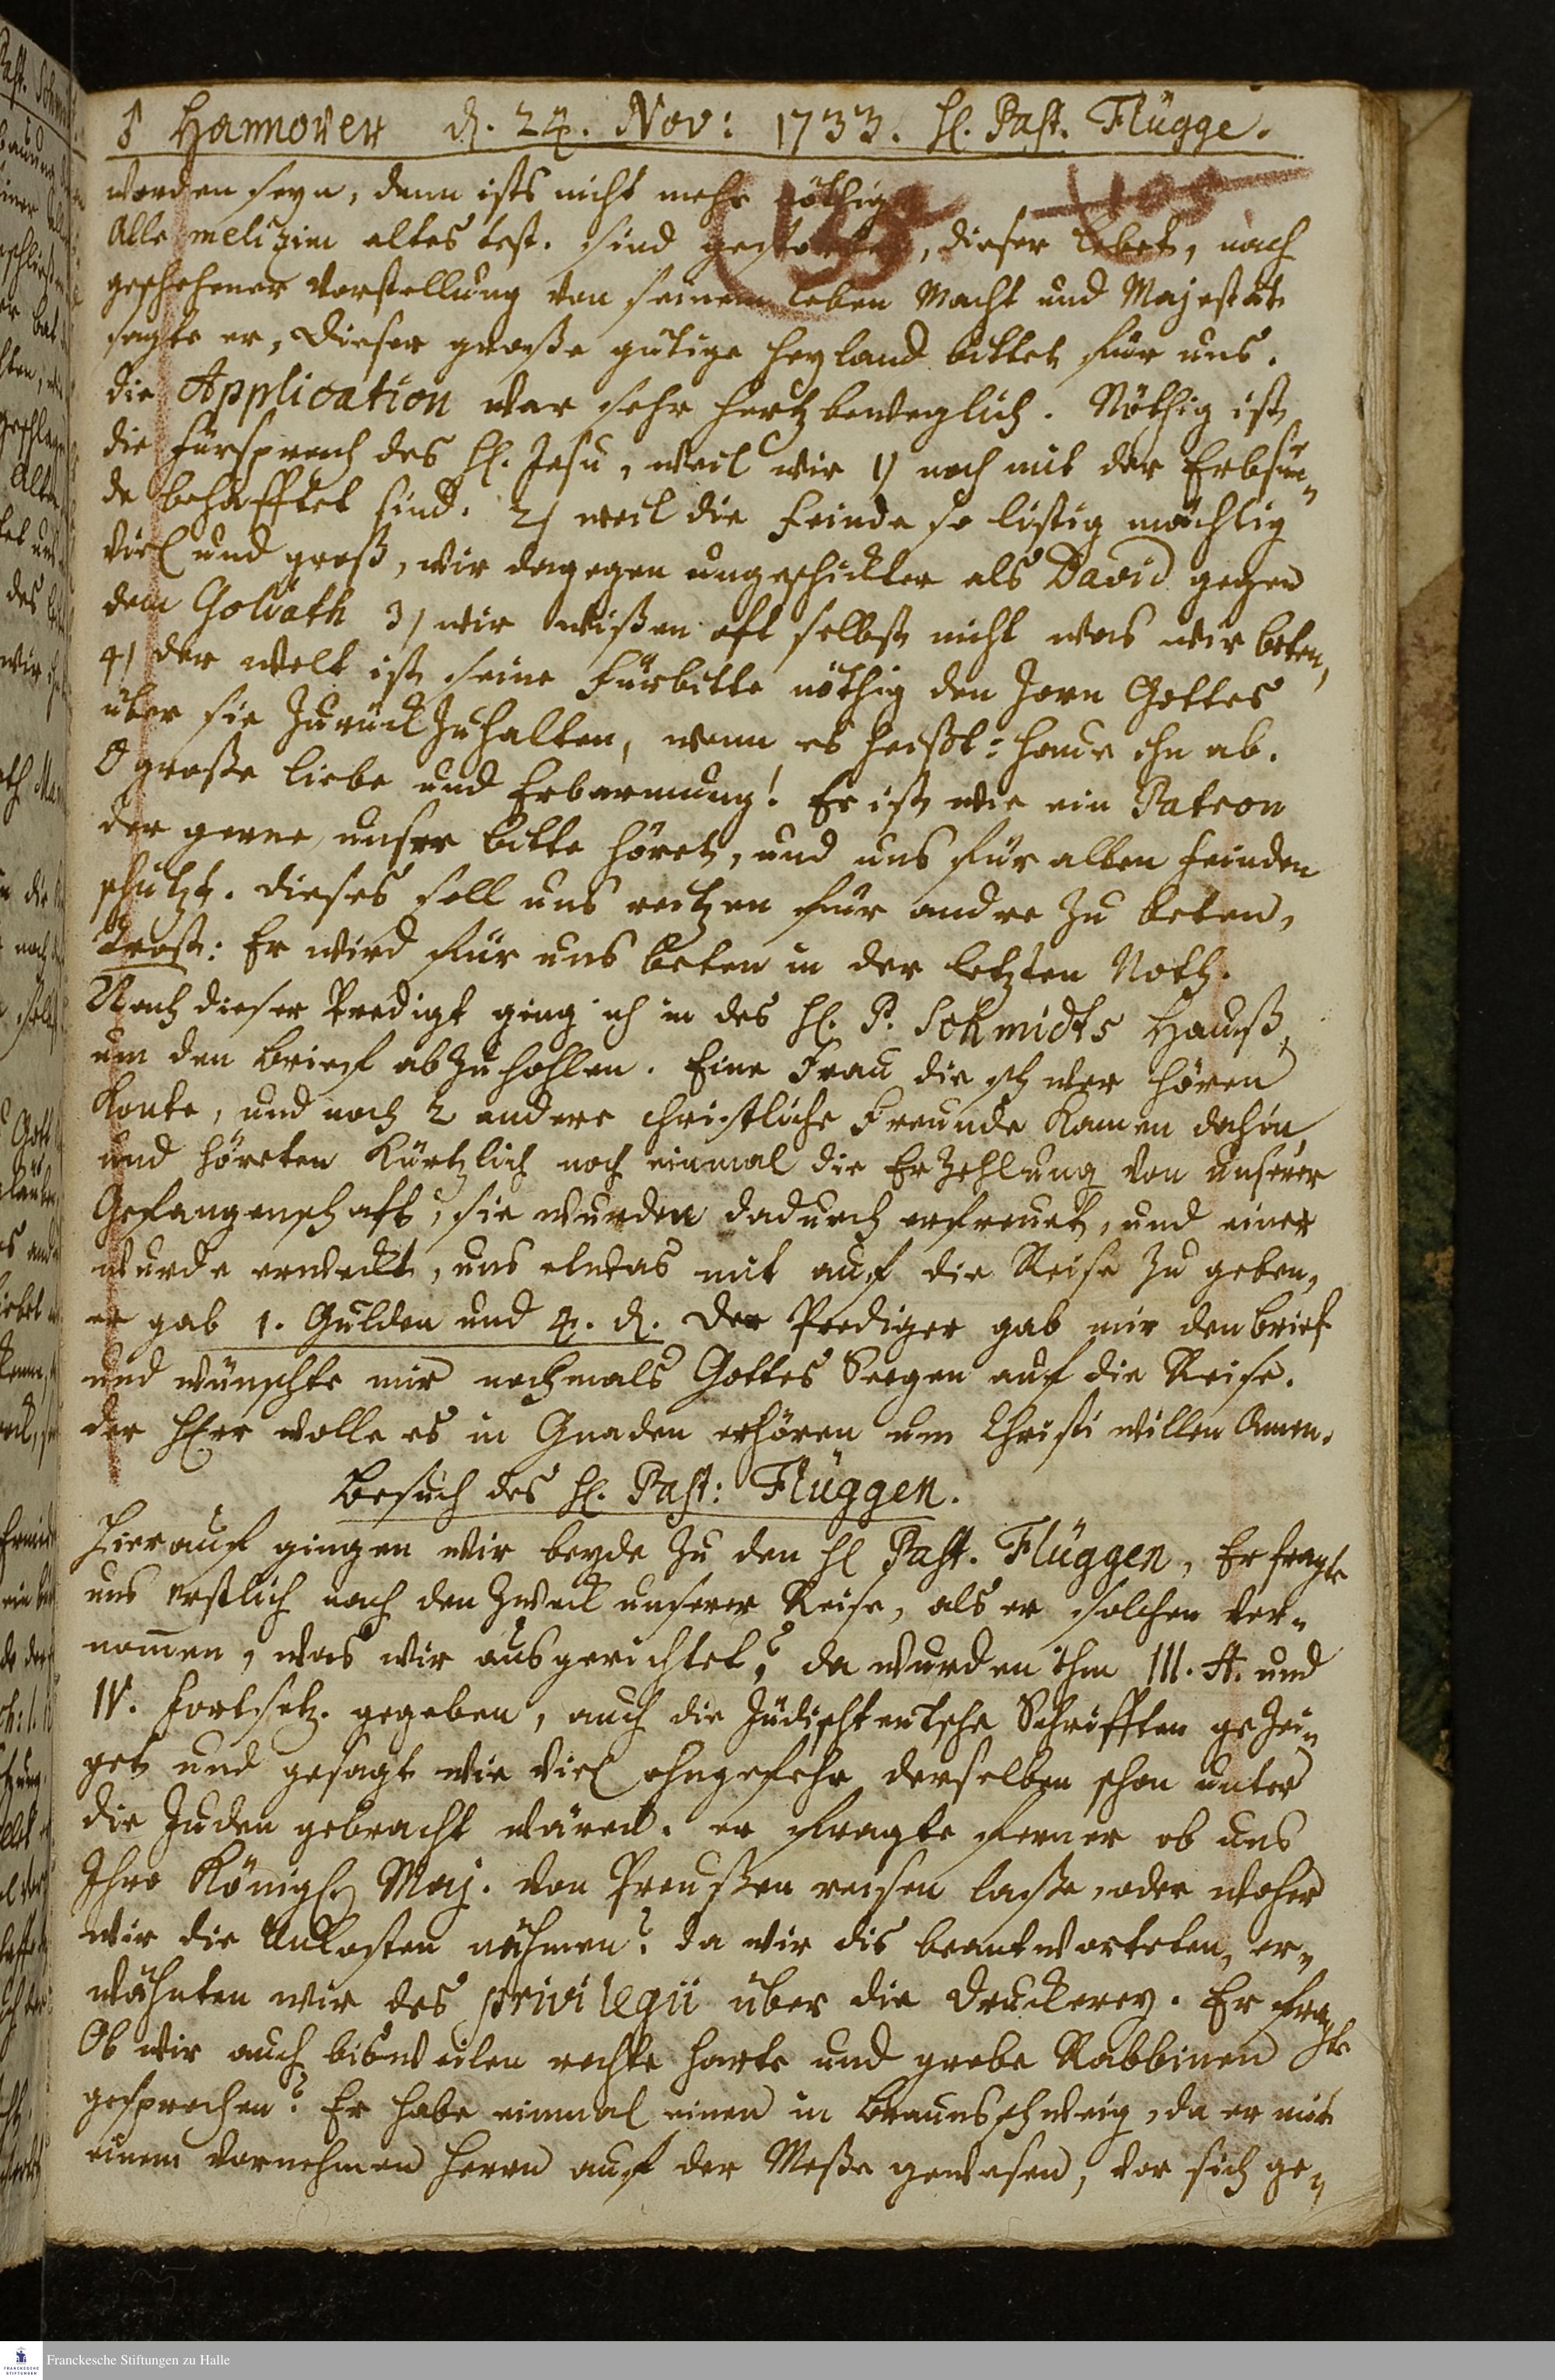 ♂ Hannover d. 24. Nov: 1733. H. Past. Flügge.
worden seyn, denn ists nicht mehr nöthig
Alle melizim altes test. sind gestorben, dieser lebet, nach
geschehener Vorstellung von seinem leben Macht und Majestät
sagte er, dieser große gütige Heyland bittet für uns.
die Application war sehr hertzbeweglich. Nöthig ist
die Fürsprach des H. Jesu, weil wir 1) noch mit der Erbsün-
de behafftet sind. 2) weil die Feinde so listig mächtig
viel und groß, wir dagegen ungeschickter als David gegen
dem Goliath 3) wir wißen oft selbst nicht was wir beten,
4) der Welt ist seine Fürbitte nöthig den Zorn Gottes
über sie zurück zuhalten, wenn es heißt: haue ihn ab.
O große liebe und Erbarmung! Er ist wie ein Patron
der gerne unser bitte höret, und uns für allen Feinden
schützt. dieses soll uns reitzen für andre zu beten,
Trost: Er wird für uns beten in der letzten Noth.
Nach dieser Predigt ging ich in des H. P. Schmidts Hauß,
um den brief abzuhohlen. Eine Frau die schwer hören
konte, und noch 2 andere christliche Freunde kamen dahin,
und höreten kürtzlich noch einmal die Erzehlung von unserer
Gefangenschaft, sie wurden dadurch erfreuet, und einer
wurde erweckt, uns etwas mit auf die Reise zu geben,
er gab 1. Gulden und 4. d. Der Prediger gab mir den brief
und wünschte mir nochmals Gottes Seegen auf die Reise.
der HErr wolle es in Gnaden erhören um Christi willen Amen.
Besuch des H. Past: Flüggen.
Hierauf gingen wir beyde zu den H Past. Flüggen, Er fragte
uns erstlich nach den Zweck unserer Reise, als er solchen ver-
nom̄en, was wir ausgerichtet? da wurden ihm III. St. und
IV. Fortsetz. gegeben, auch die Jüdischteutsche Schrifften gezei-
get und gesagt wie viel ohngefehr derselben schon unter
die Juden gebracht wären. er fragte ferner ob uns
Ihro Königl Maj. von Preußen reisen laße, oder woher
wir die Unkosten nähmen? da wir dis beantworteten, er-
wähnten wir des privilegii über die Druckerey. Er fragte
Ob wir auch bisweilen rechte harte und grobe Rabbinen
gesprochen? Er habe einmal einen in Braunschweig, da er mit
einem vornehmen Herrn auf der Meße gewesen, vor sich ge-
Franckesche Stiftungen zu Halle